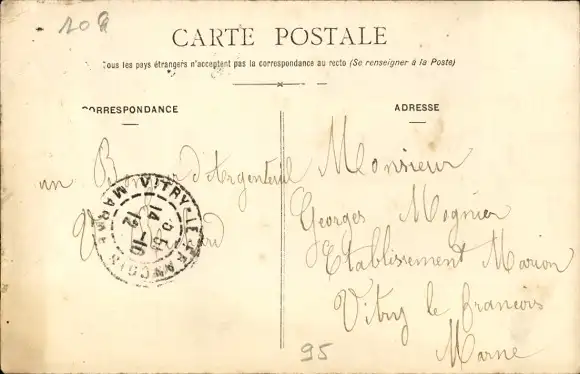 208
CARTE POSTALE
Tous les pays étrangers n'acceptent pas la correspondance au recto (Se renseigner à la Poste)
CORRESPONDANCE
ADRESSE
un Bonjour d'Argenteuil
VITRY-LE-FRANCOIS
MARNE
14
12-10
Monsieur
Georges Mognier
Etablissement Marion
Vitry le francois
Marne
95